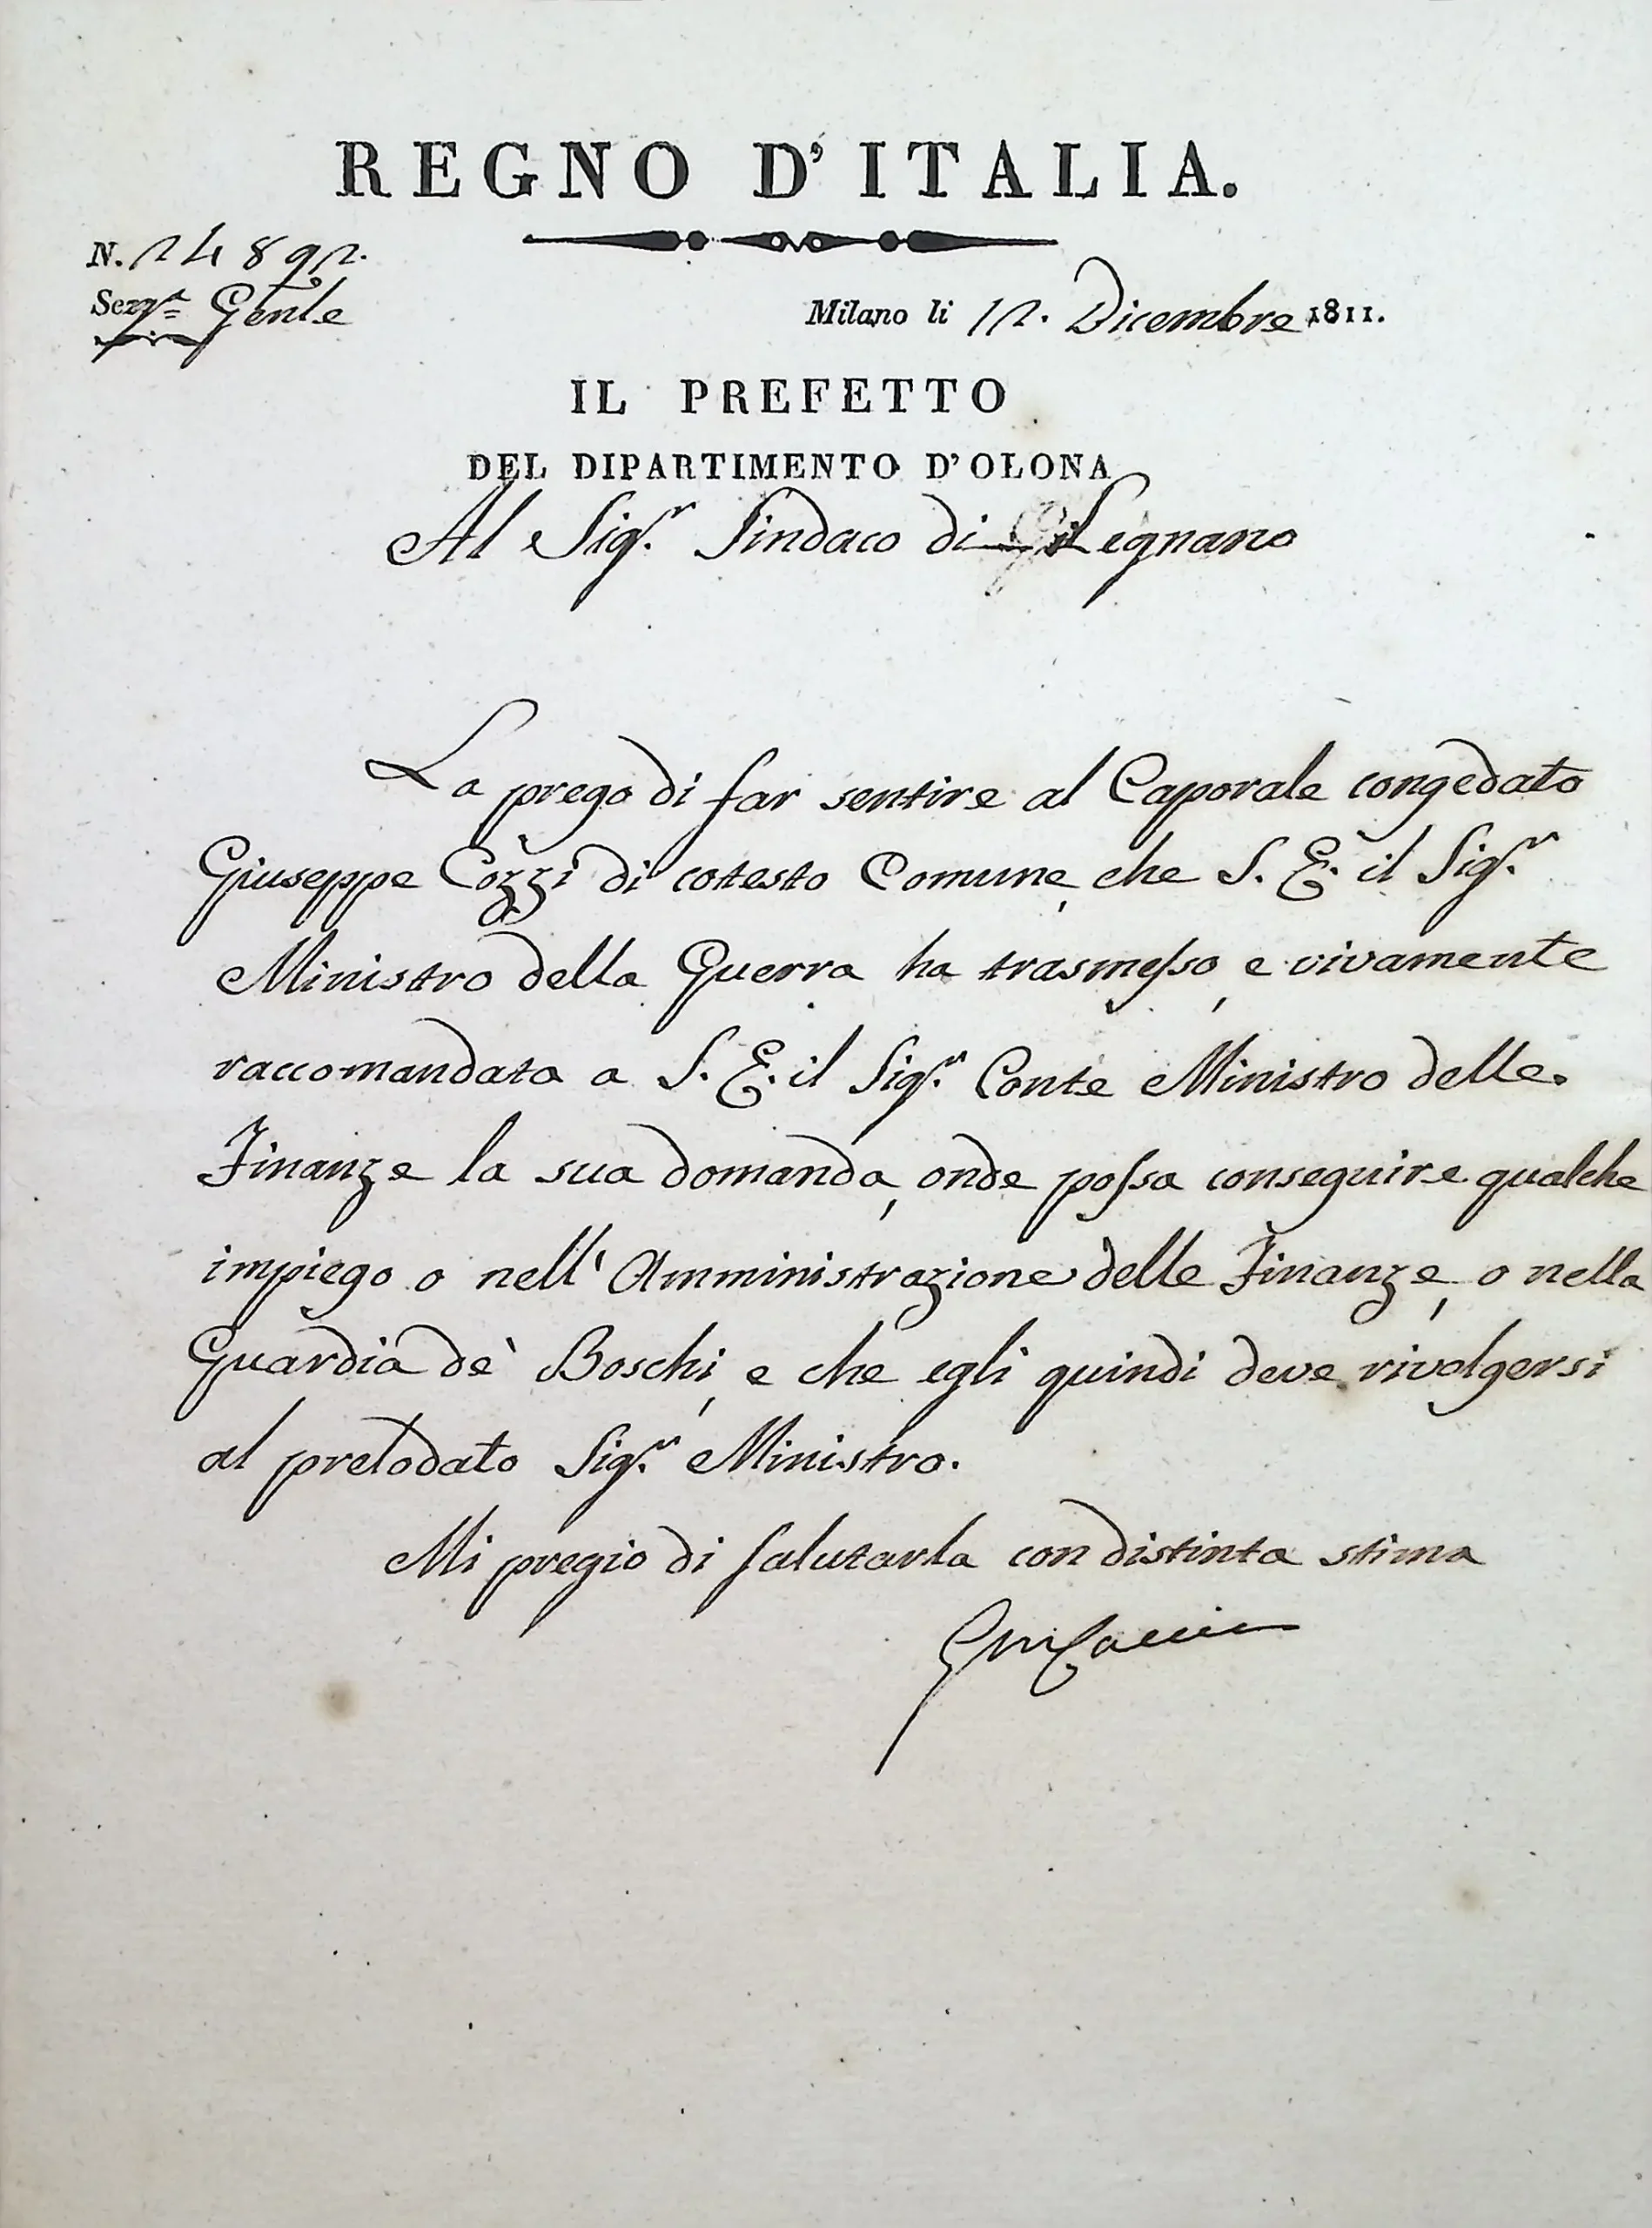 REGNO D'ITALIA.
N. 24892.
Sez. Genle
Milano li 12. Dicembre 1811.
IL PREFETTO
DEL DIPARTIMENTO D'OLONA
Al Sigr. Sindaco di Legnano
La prego di far sentire al Caporale congedato
Giuseppe Cozzi di cotesto Comune, che S. E. il Sigr.
Ministro della Guerra ha trasmesso, e vivamente
raccomandata a S. E. il Sigr. Conte Ministro delle
Finanze la sua domanda, onde possa conseguire qualche
impiego o nell'Amministrazione delle Finanze, o nella
Guardia de' Boschi, e che egli quindi deve rivolgersi
al prelodato Sigr. Ministro.
Mi pregio di salutarla con distinta stima